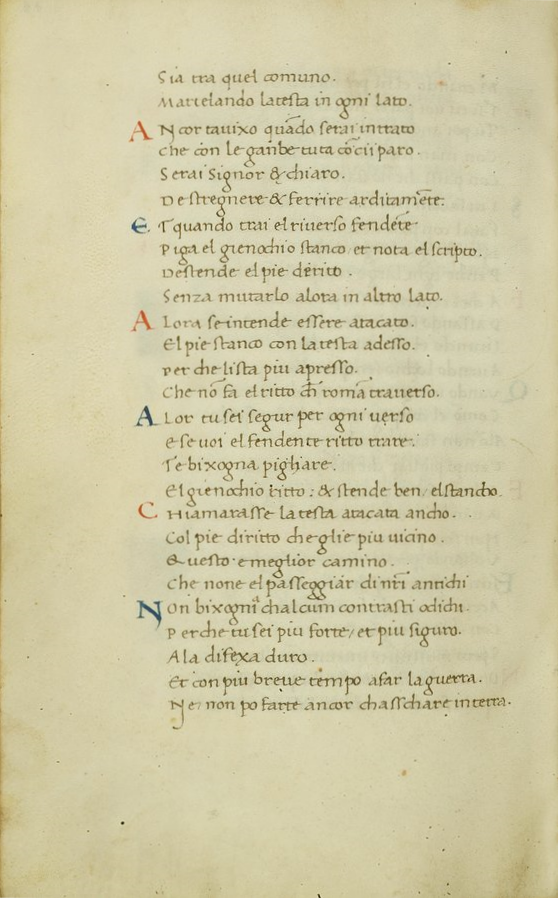 Sia tra quel comuno.
Martelando latesta in ogni lato.
AN cor tauixo quãdo serai intrato
che con le gãnbe tuta cõ cii paro.
Serai Signor & chiaro.
De stregnere & ferrire arditamẽte:
ET quando trai el riuerso fendẽte
Piga el gienochio stanco et nota el scripto.
Destende el pie dẽrito.
Senza mutarlo alora in altro lato.
ALora se intende essere atacato.
El pie stanco con la testa adesso.
Per che li sta piu apresso.
Che nõ fa el ritto ch̃ romã trauerso.
ALor tu sei segur per ogni uerso
e se uoi el fendente ritto trare.
Te bixogna pigliare.
El gienochio ritto: & stende ben elstancho.
CHiamarasse la testa atacata ancho.
Col pie diritto che glie piu uicino.
Questo e meglior camino.
Che none el passeggiar di nr̃i antichi
NOn bixogni chalcum contrasti o dichi.
Perche tu sei piu forte/ et piu siguro.
Ala difexa duro.
Et con piu breue tempo afar la guerra.
Ne non po farte ancor chasschare in terra.